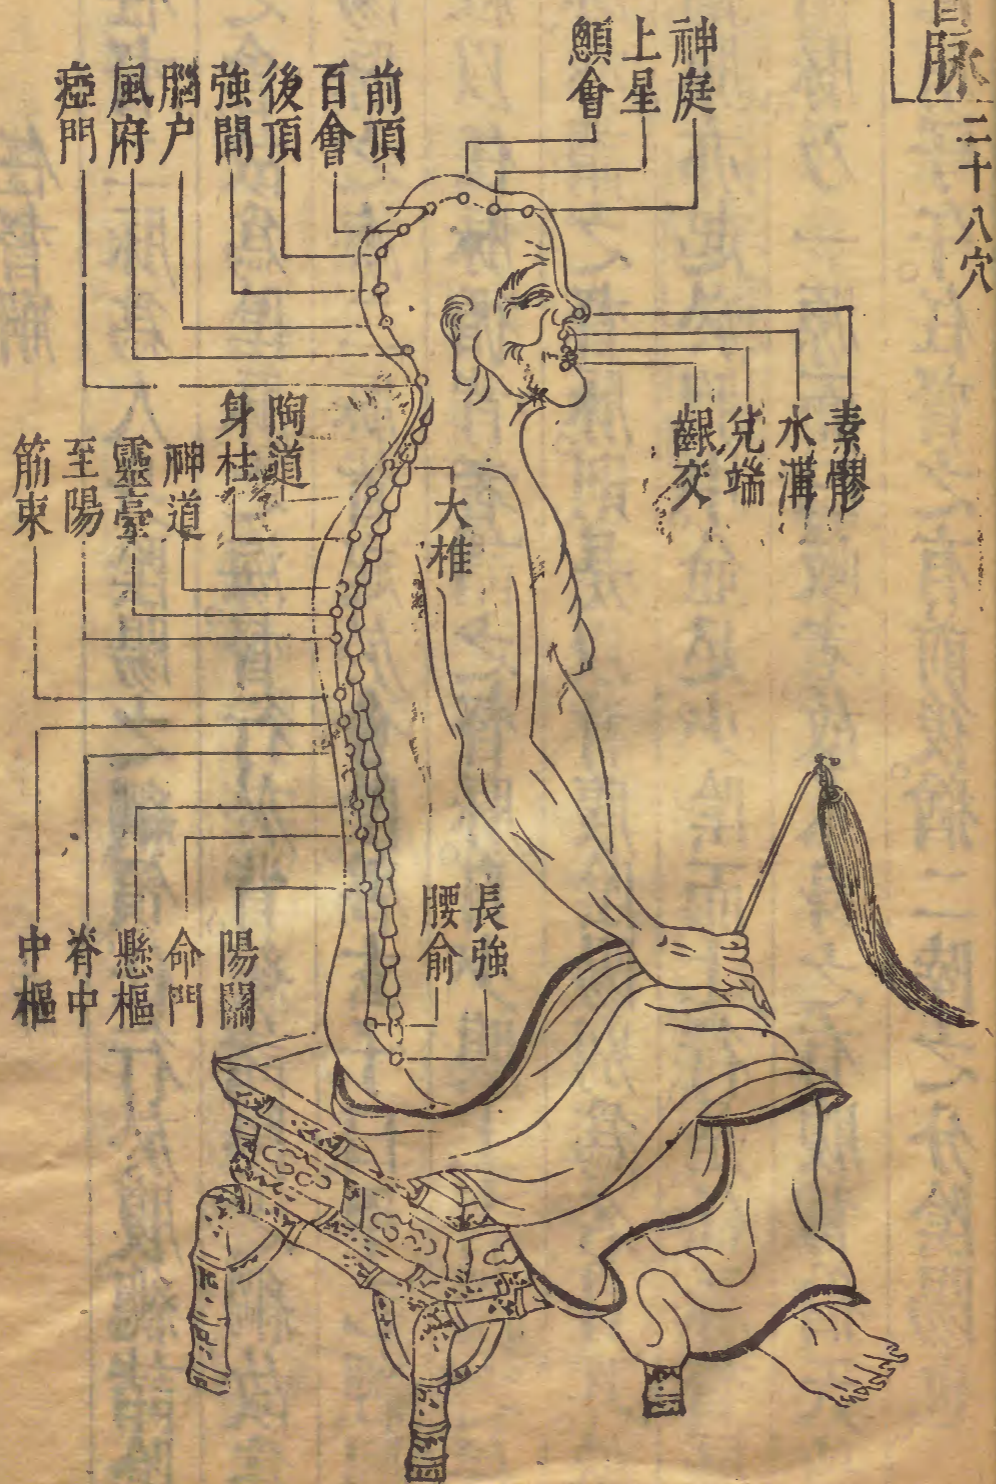 督脉
二十八穴
神庭
上星
顖會
前頂
百會
後頂
強間
腦户
風府
瘂門
素髎
水溝
兊端
齦交
大椎
陶道
身柱
神道
靈臺
至陽
筋束
長強
腰俞
陽關
命門
懸樞
脊中
中樞